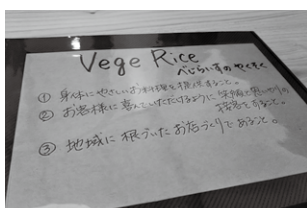 Vege Rice
べじらいすのやくそく
① 身体にやさしいお料理を提供すること。
② お客様に喜んでいただけるように笑顔と思いやりの
接客をすること。
③ 地域に根づいたお店づくりであること。